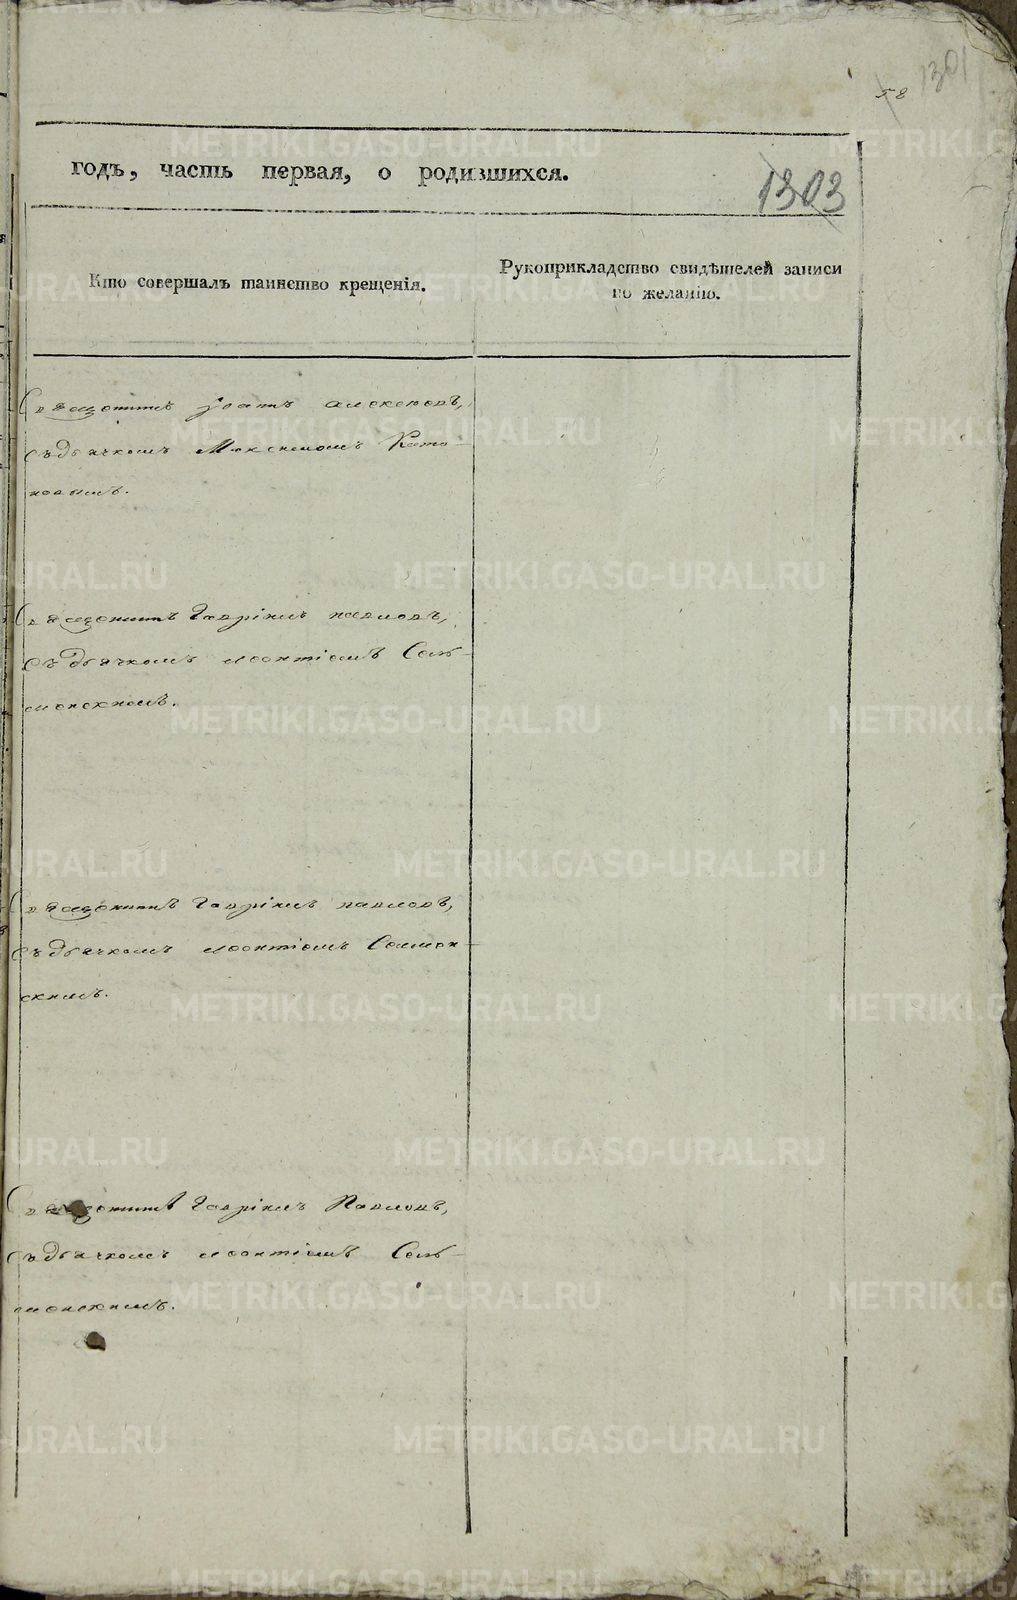 1301
58
годъ, часть первая, о родившихся.
1303
Кто совершалъ таинство крещенія.
Рукоприкладство свидѣтелей записи
по желанію.
Священникъ Іоаннъ Алексѣевъ,
съ дьячкомъ Максимомъ
новымъ.
Священникъ Гавріилъ павловъ,
съ дьячкомъ леонтіемъ Сель-
менскимъ.
Священникъ Гавріилъ павловъ,
съ дьячкомъ леонтіемъ Селмен-
скимъ.
Священникъ Гавріилъ Павловъ,
съ дьячкомъ леонтіемъ Сель-
менскимъ.
METRIKI.GASO-URAL.RU